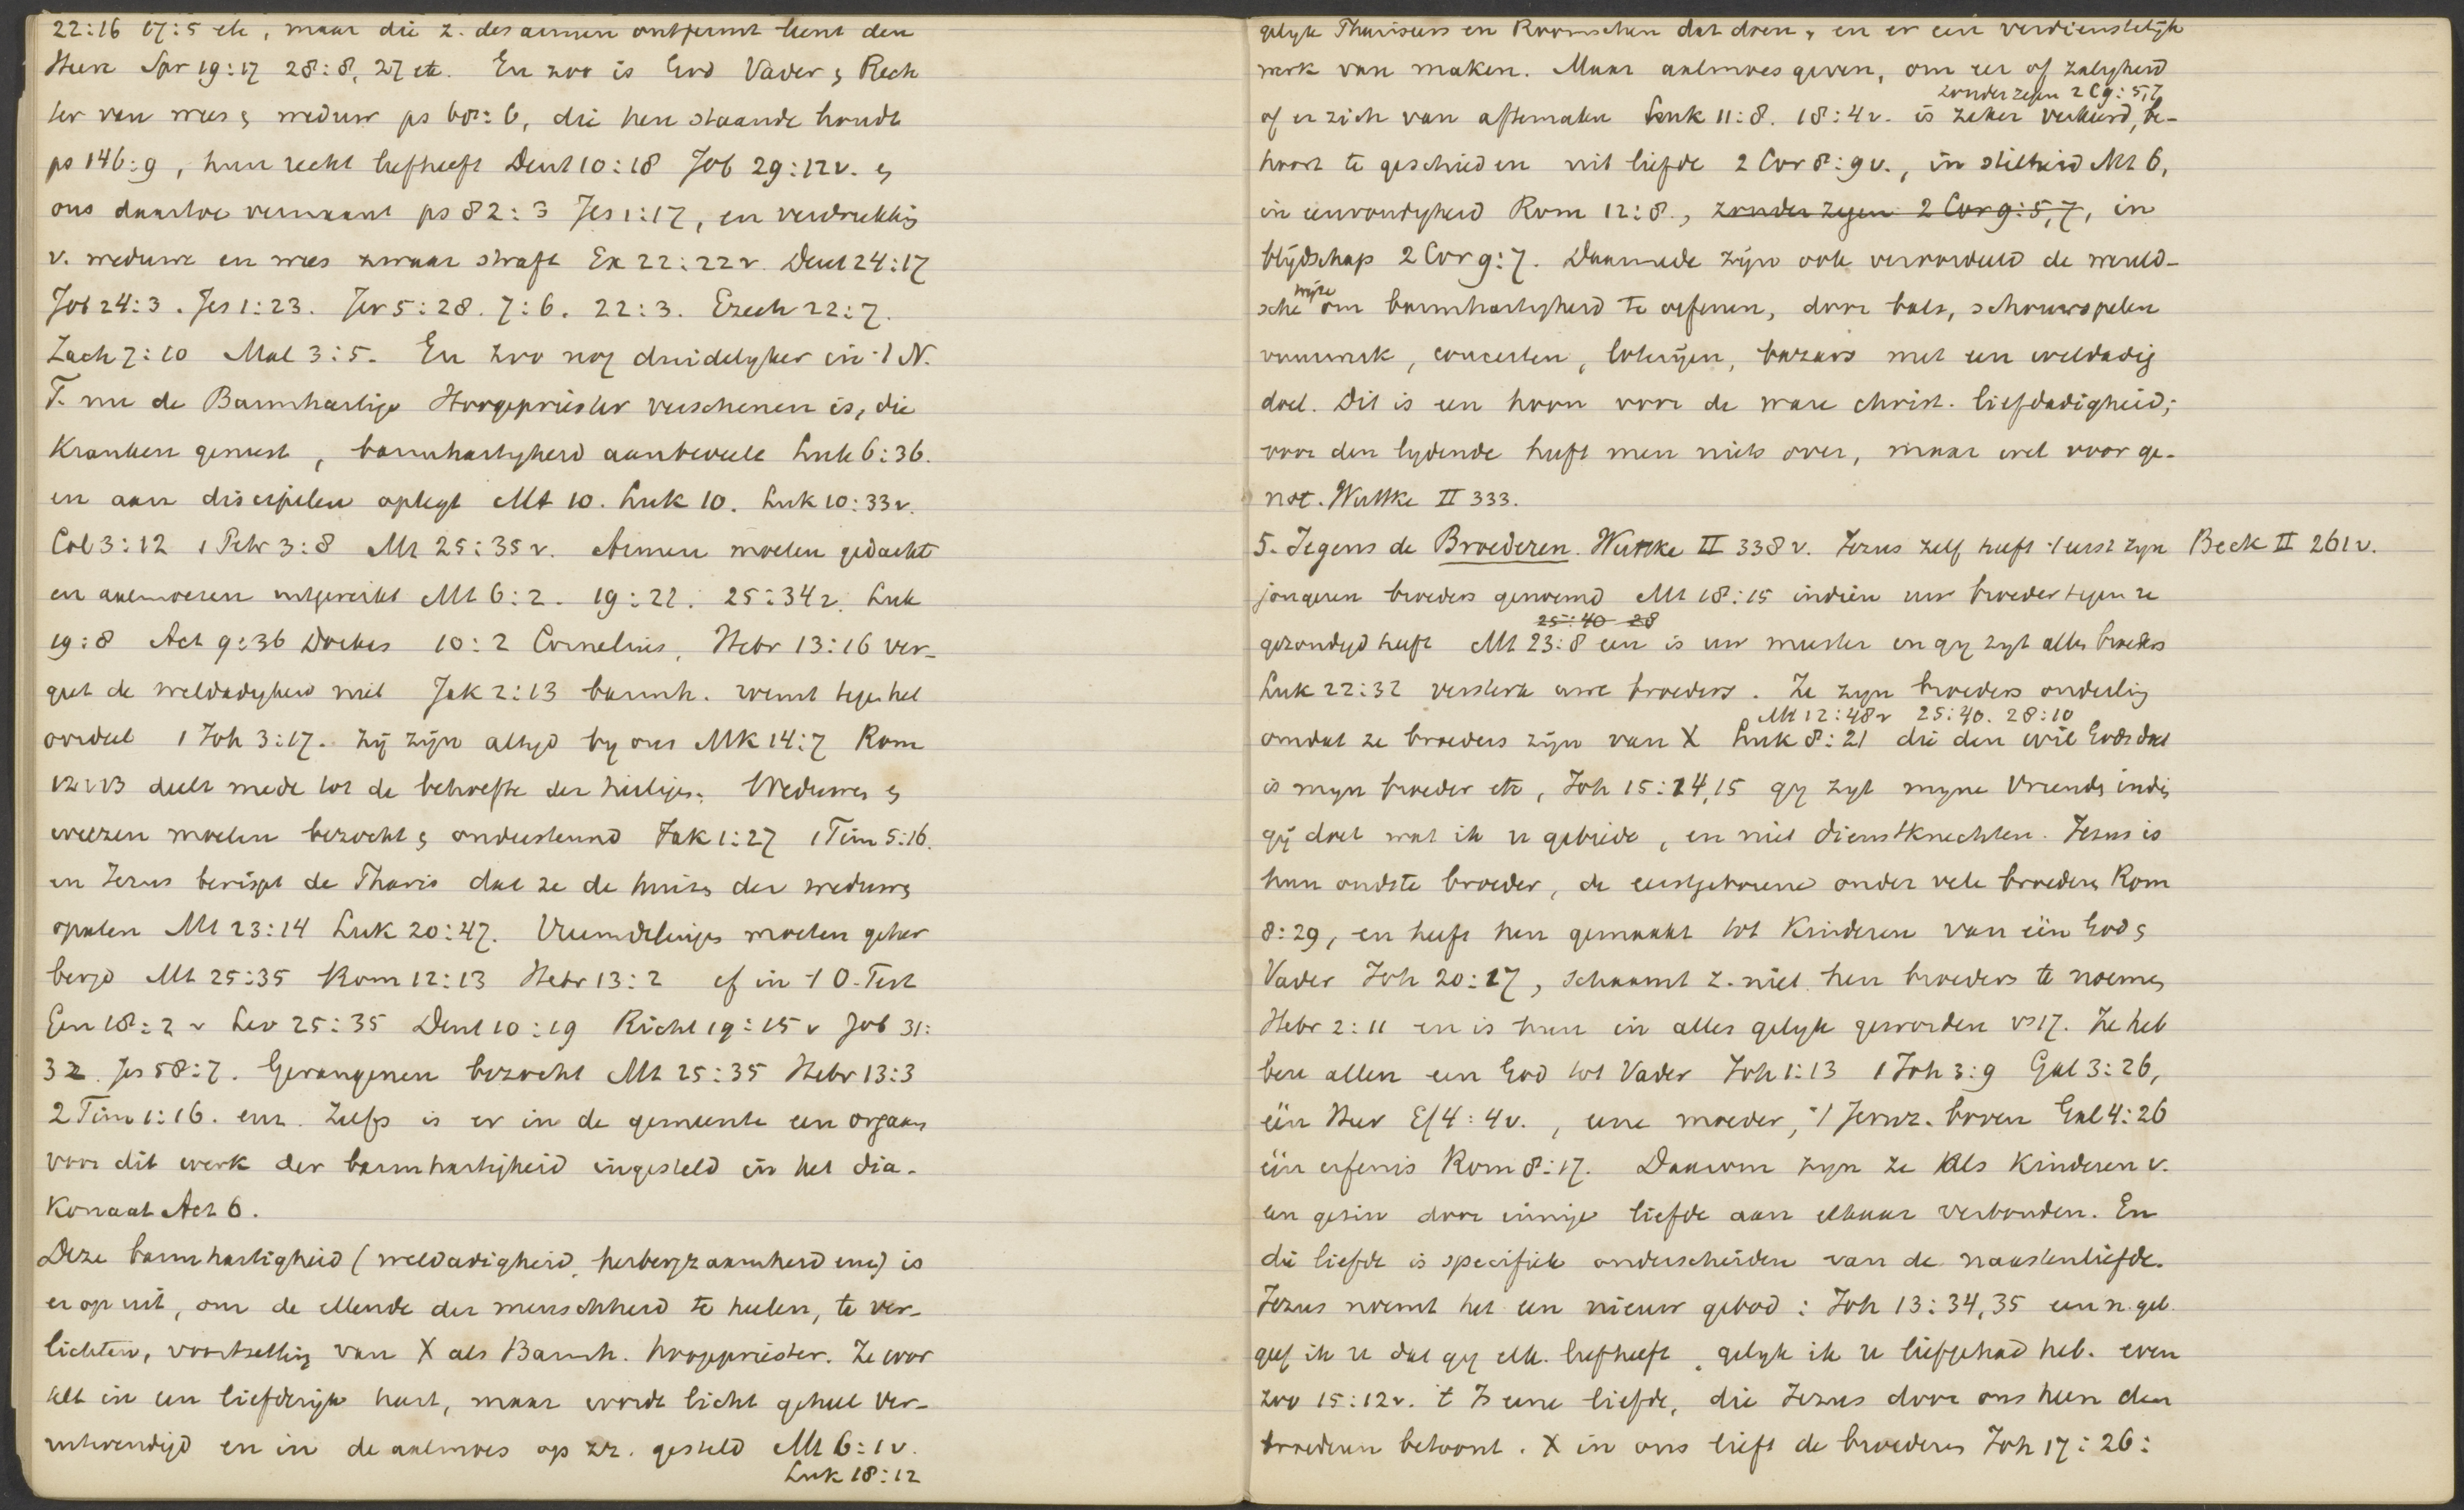 22:16 17:5 etc, maar die z. des armen ontfermt leent den
Heere Spr 19:17 28:8, 27 etc. En zoo is God Vader & Rech
ter van wees & weduw ps 68:6, die hen staande houdt
ps 146:9, hun recht liefheeft Deut 10:18 Job 29:12v. &
ons daartoe vermaant ps 82:3 Jes 1:17, en verdrukking
v. weduwe en wees zwaar straft Ex 22:22v Deut 24:17
Job 24:3. Jes 1:23. Jer 5:28. 7:6. 22:3. Ezech 22:7.
Zach 7:10 Mal 3:5. En zoo nog duidelyker in 't N.
T. nu de Barmhartige Hoogepriester verschenen is, die
Kranken geneest, barmhartigheid aanbeveelt Luk 6:36.
en aan discipelen oplegt Mt 10. Luk 10. Luk 10:33v.
Col 3:12 1 Petr 3:8 Mt 25:35v. Armen moeten gedacht
en aalmoezen uitgereikt Mt 6:2. 19:22. 25:34v. Luk
19:8 Act 9:36 Dorkas 10:2 Cornelius, Hebr 13:16 ver-
geet de weldadigheid niet Jak 2:13 barmh. roemt tegen het
oordeel 1 Joh 3:17. Zij zijn altyd by ons Mk 14:7 Rom
12:13 deelt mede tot de behoefte der heiligen. Weduwen &
weezen moeten bezocht & ondersteund Jak 1:27 1 Tim 5:16.
en Jezus berispt de Phariz dat ze de huizen der weduwen
opeten Mt 23:14 Luk 20:47. Vreemdelingen moeten geher
bergd Mt 25:35 Rom 12:13 Hebr 13:2 cf in 't O. Test
Gen 18:2v Lev 25:35 Deut 10:19 Richt 19:15v Job 31:
32. Jes 58:7. Gevangenen bezocht Mt 25:35 Hebr 13:3
2 Tim 1:16. enz. Zelfs is er in de gemeente een orgaan
voor dit werk der barmhartigheid ingesteld in het dia-
konaat Act 6.
Deze barmhartigheid (weldadigheid, herbergzaamheid enz) is
er op uit, om de ellende der menschheid te heelen, te ver-
lichten, voortzetting van X als Barmh. hoogepriester. Ze wor
telt in een liefderijk hart, maar wordt licht geheel ver-
uitwendigd en in de aalmoes op zz. gesteld Mt 6:1v.
Luk 18:12
gelyk Pharizeers en Roomschen dat doen, en er een verdienstelijk
werk van maken. Maar aalmoes geven, om eer of zaligheid
zonder zegen 2 C 9:5,7
of er zich van aftemaken Luk 11:8. 18:4v. is zeker verkeerd, be-
hoort te geschieden uit liefde 2 Cor 8:9v., in stilheid Mt 6,
in eenvoudigheid Rom 12:8., zonder zegen 2 Cor 9:5,7, in
blijdschap 2 Cor 9:7. Daarmede zijn ook veroordeeld de wereld-
wijze
sche om barmhartigheid te oefenen, door bals, schouwspelen
vuurwerk, concerten, loterijen, bazars met een weldadig
doel. Dit is een hoon voor de ware christ. liefdadigheid;
voor den lydende heeft men niets over, maar wel voor ge-
not. Wuttke II 333.
5. Jegens de Broederen. Wuttke II 338v. Jezus zelf heeft 't eerst zyn
Beck II 261v.
jongeren broeders genoemd Mt 18:15 indien uw broeder tegen u
25:40 28
gezondigd heeft Mt 23:8 een is uw meester en gy zyt allen broeders
Luk 22:32 versterk uwe broeders. Ze zyn broeders onderling
Mt 12:48v 25:40. 28:10
omdat ze broeders zijn van X Luk 8:21 die den wil Gods doet
is myn broeder etc, Joh 15:14,15 gy zyt myne Vrienden indien
gij doet wat ik u gebiede, en niet dienstknechten. Jezus is
hun oudste broeder, de eerstgeborene onder vele broederen Rom
8:29, en heeft hen gemaakt tot Kinderen van één God &
Vader Joh 20:17, schaamt z. niet hen broeders te noemen
Hebr 2:11 en is hun in alles gelyk geworden vs 17. Ze heb
ben allen een God tot Vader Joh 1:13 1 Joh 3:9 Gal 3:26,
één Heer Ef 4:4v., eene moeder, 't Jeruz. boven Gal 4:26
één erfenis Rom 8:17. Daarom zyn ze als Kinderen v.
een gezin door innige liefde aan elkaar verbonden. En
die liefde is specifiek onderscheiden van de naastenliefde.
Jezus noemt het een nieuw gebod: Joh 13:34,35 een n. geb.
geef ik u dat gy elk. liefheeft, gelyk ik u liefgehad heb. even
zoo 15:12v. 't Is eene liefde, die Jezus door ons heen den
broederen betoont. X in ons lieft de broederen Joh 17:26: